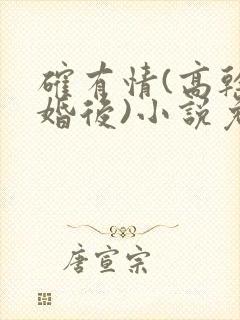 確有情(高幹
婚後)小說免
唐宣宗